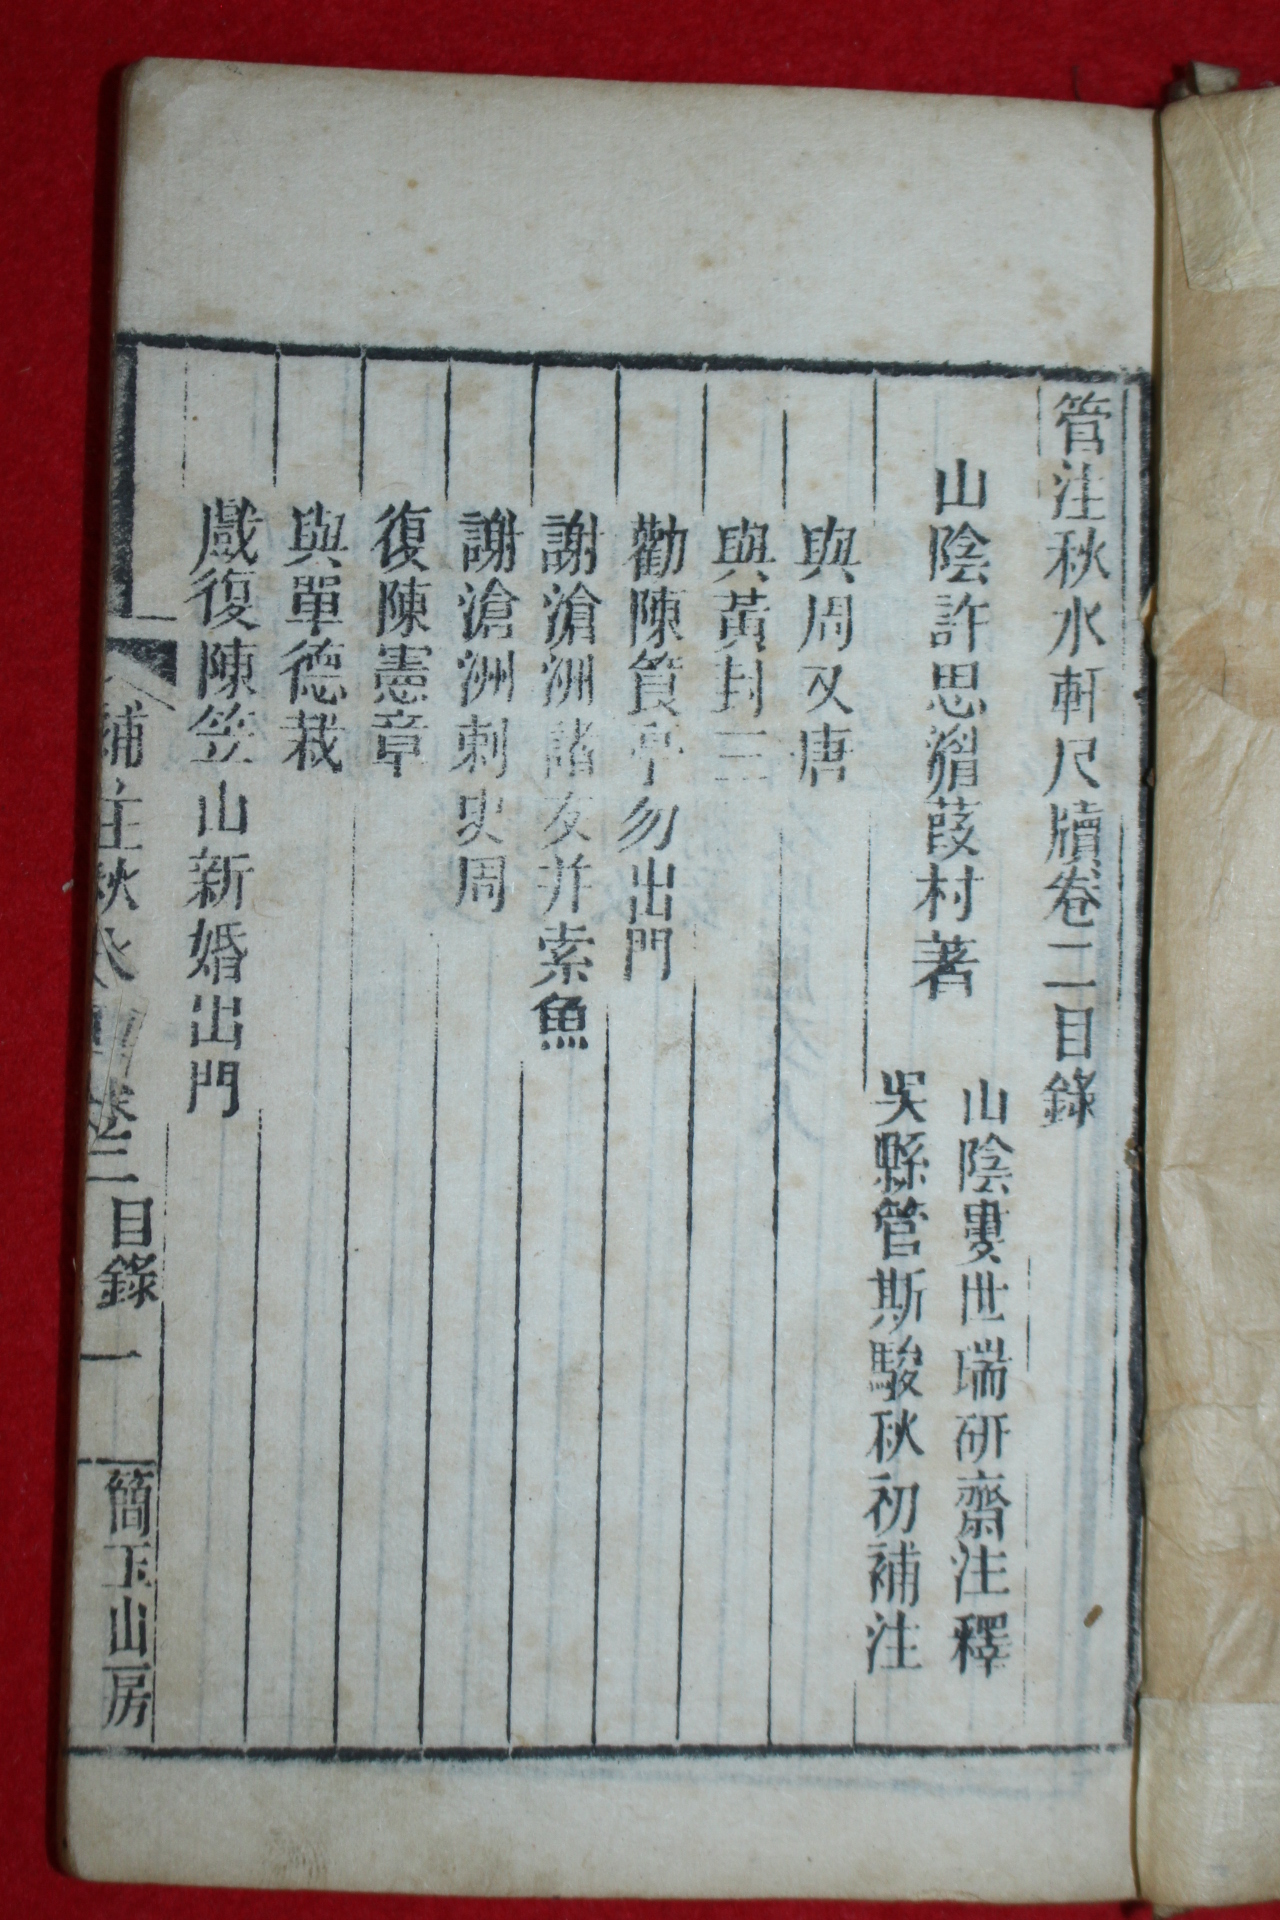 管注秋水軒尺牘卷二目錄
山陰許思湄葭村著
山陰婁世瑞硏齋注釋
吳縣管斯駿秋初補注
與周又唐
與黃封三
勸陳篔亭勿出門
謝滄洲諸友幷索魚
謝滄洲刺史周
復陳憲章
與單德栽
戲復陳笠山新婚出門
補注秋水軒卷二目錄 一 簡玉山房